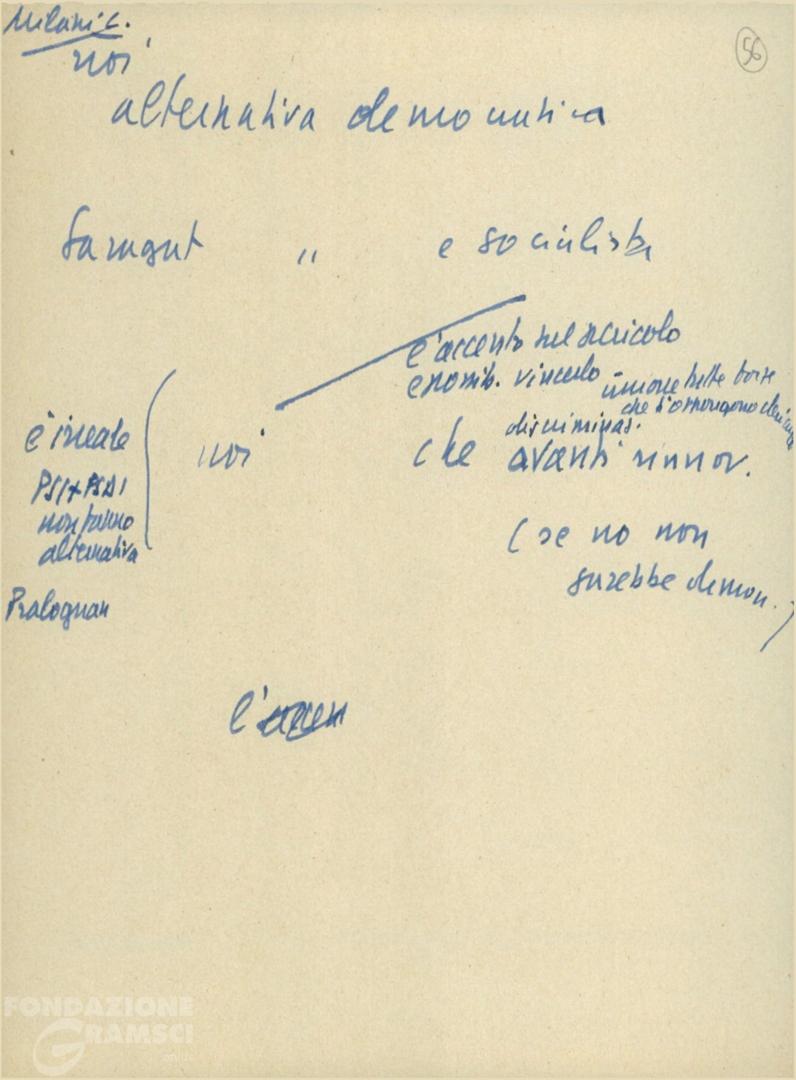 Milani C.
56
noi
alternativa democratica
Saragat " e socialista
l'accento sul pericolo
e possib. vincolo unione delle forze
che s'oppongono
discriminaz.
noi che avanti rinnov.
è irreale
PSI + PSDI
non fanno
alternativa
(se no non
sarebbe democr.)
Pralognan
l'accen
FONDAZIONE
GRAMSCI